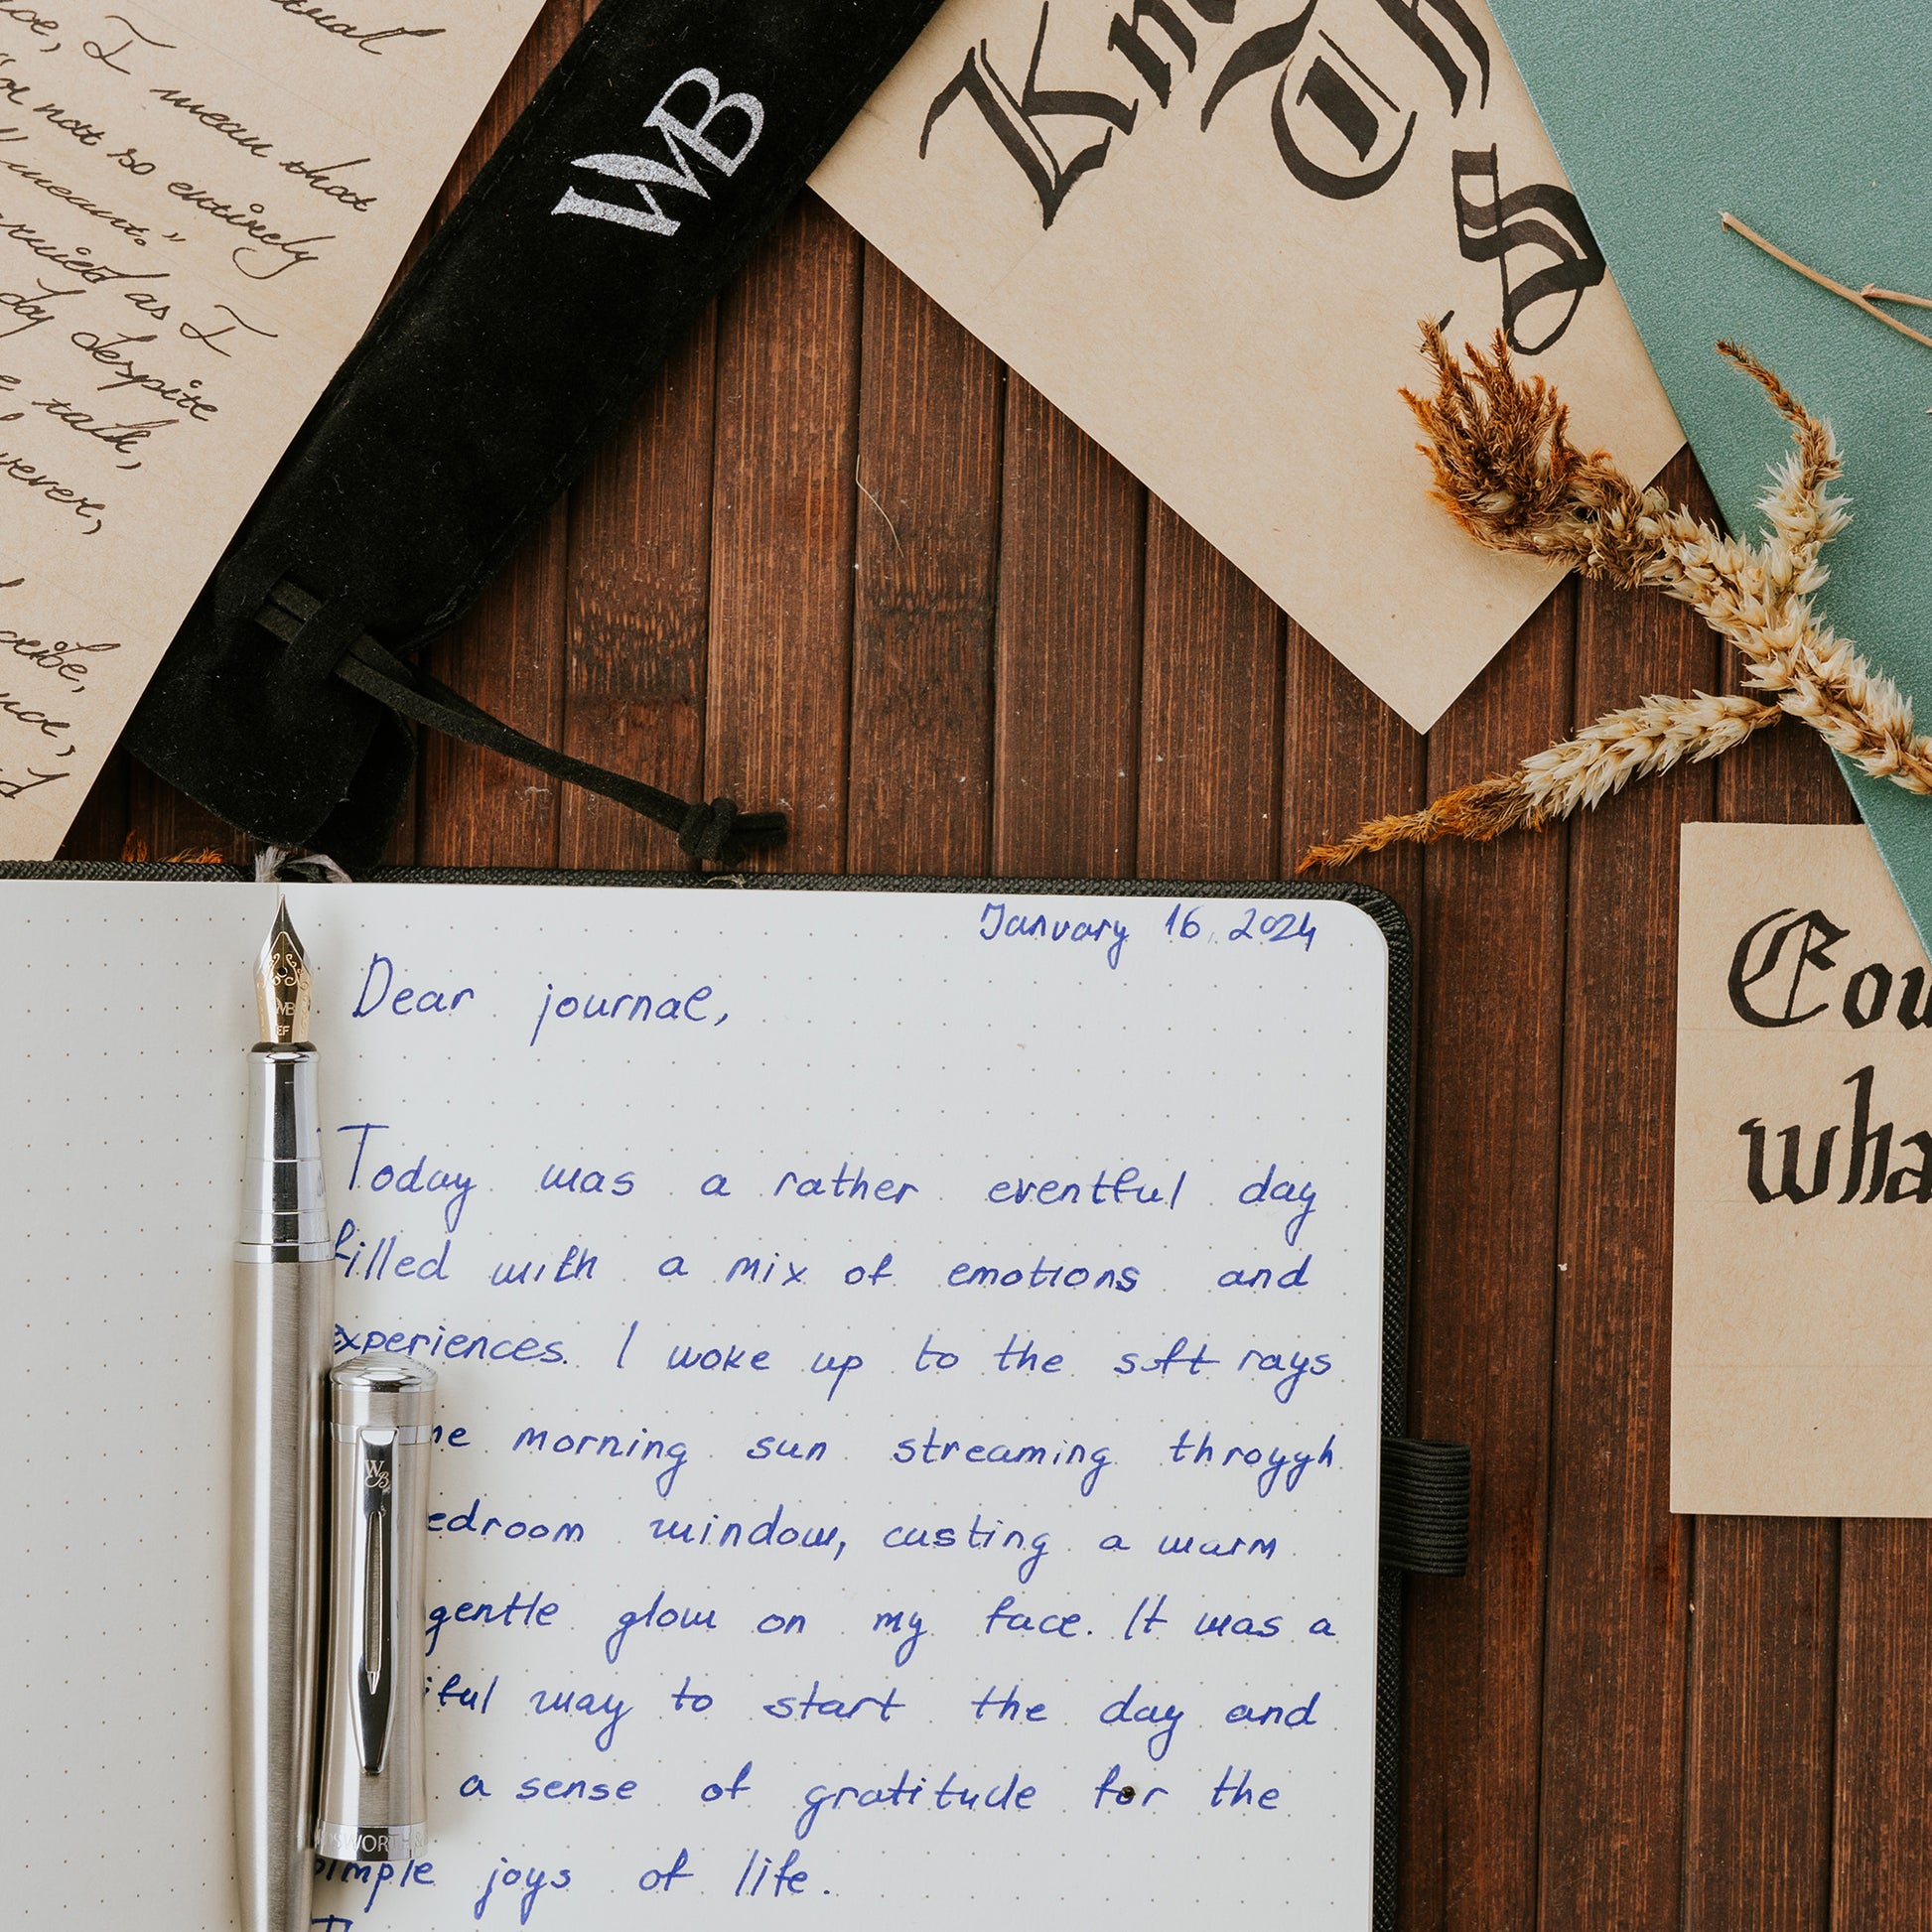 I mean that
not so entirely
meant."
as I
day despite
talk,
WB
January 16, 2024
Dear journal,
Today was a rather eventful day
filled with a mix of emotions and
experiences. I woke up to the soft rays
morning sun streaming throygh
window, casting a warm
gentle glow on my face. It was a
way to start the day and
a sense of gratitude for the
simple joys of life.
WB
EF
WB